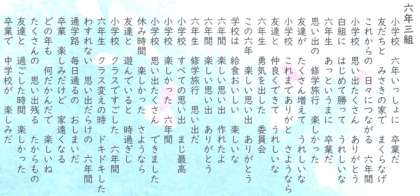 六年三組
小学校 六年いっしょに 卒業だ
友だちと みさきの家で まくらなげ
これからの 日々につながる 六年間
小学校 思い出たくさん ありがとう
白組に はじめて勝って うれしいな
思い出の 修学旅行 楽しかった
六年生 あっというまに 卒業だ
友達が たくさん増えて うれしいな
小学校 これまでありがと さようなら
友達と 仲良くできて うれしいな
六年生 勇気を出した 委員会
この六年 楽しい思い出 ありがとう
学校は 給食おいしい 楽しいな
六年間 楽しい思い出 作れたよ
六年間 楽しい思い出 ありがとう
小学校 すべての思い出 まじ最高
六年生 楽しかったな 六年間
小学校 思い出たくさん できました
休み時間 楽しかったよ さようなら
友達と 遊んでいると 時過ぎし
小学校 クラスですごした 六年間
六年生 クラス変えの時 ドキドキした
わすれない 思い出だらけの 六年間
通学路 毎日通るの おしまいだ
卒業 楽しみだけど 家遠くなる
どの年も 何だかんだで 楽しいね
たくさんの 思い出残る たからもの
友達と 過ごした時間 楽しかった
卒業で 中学校が 楽しみだ